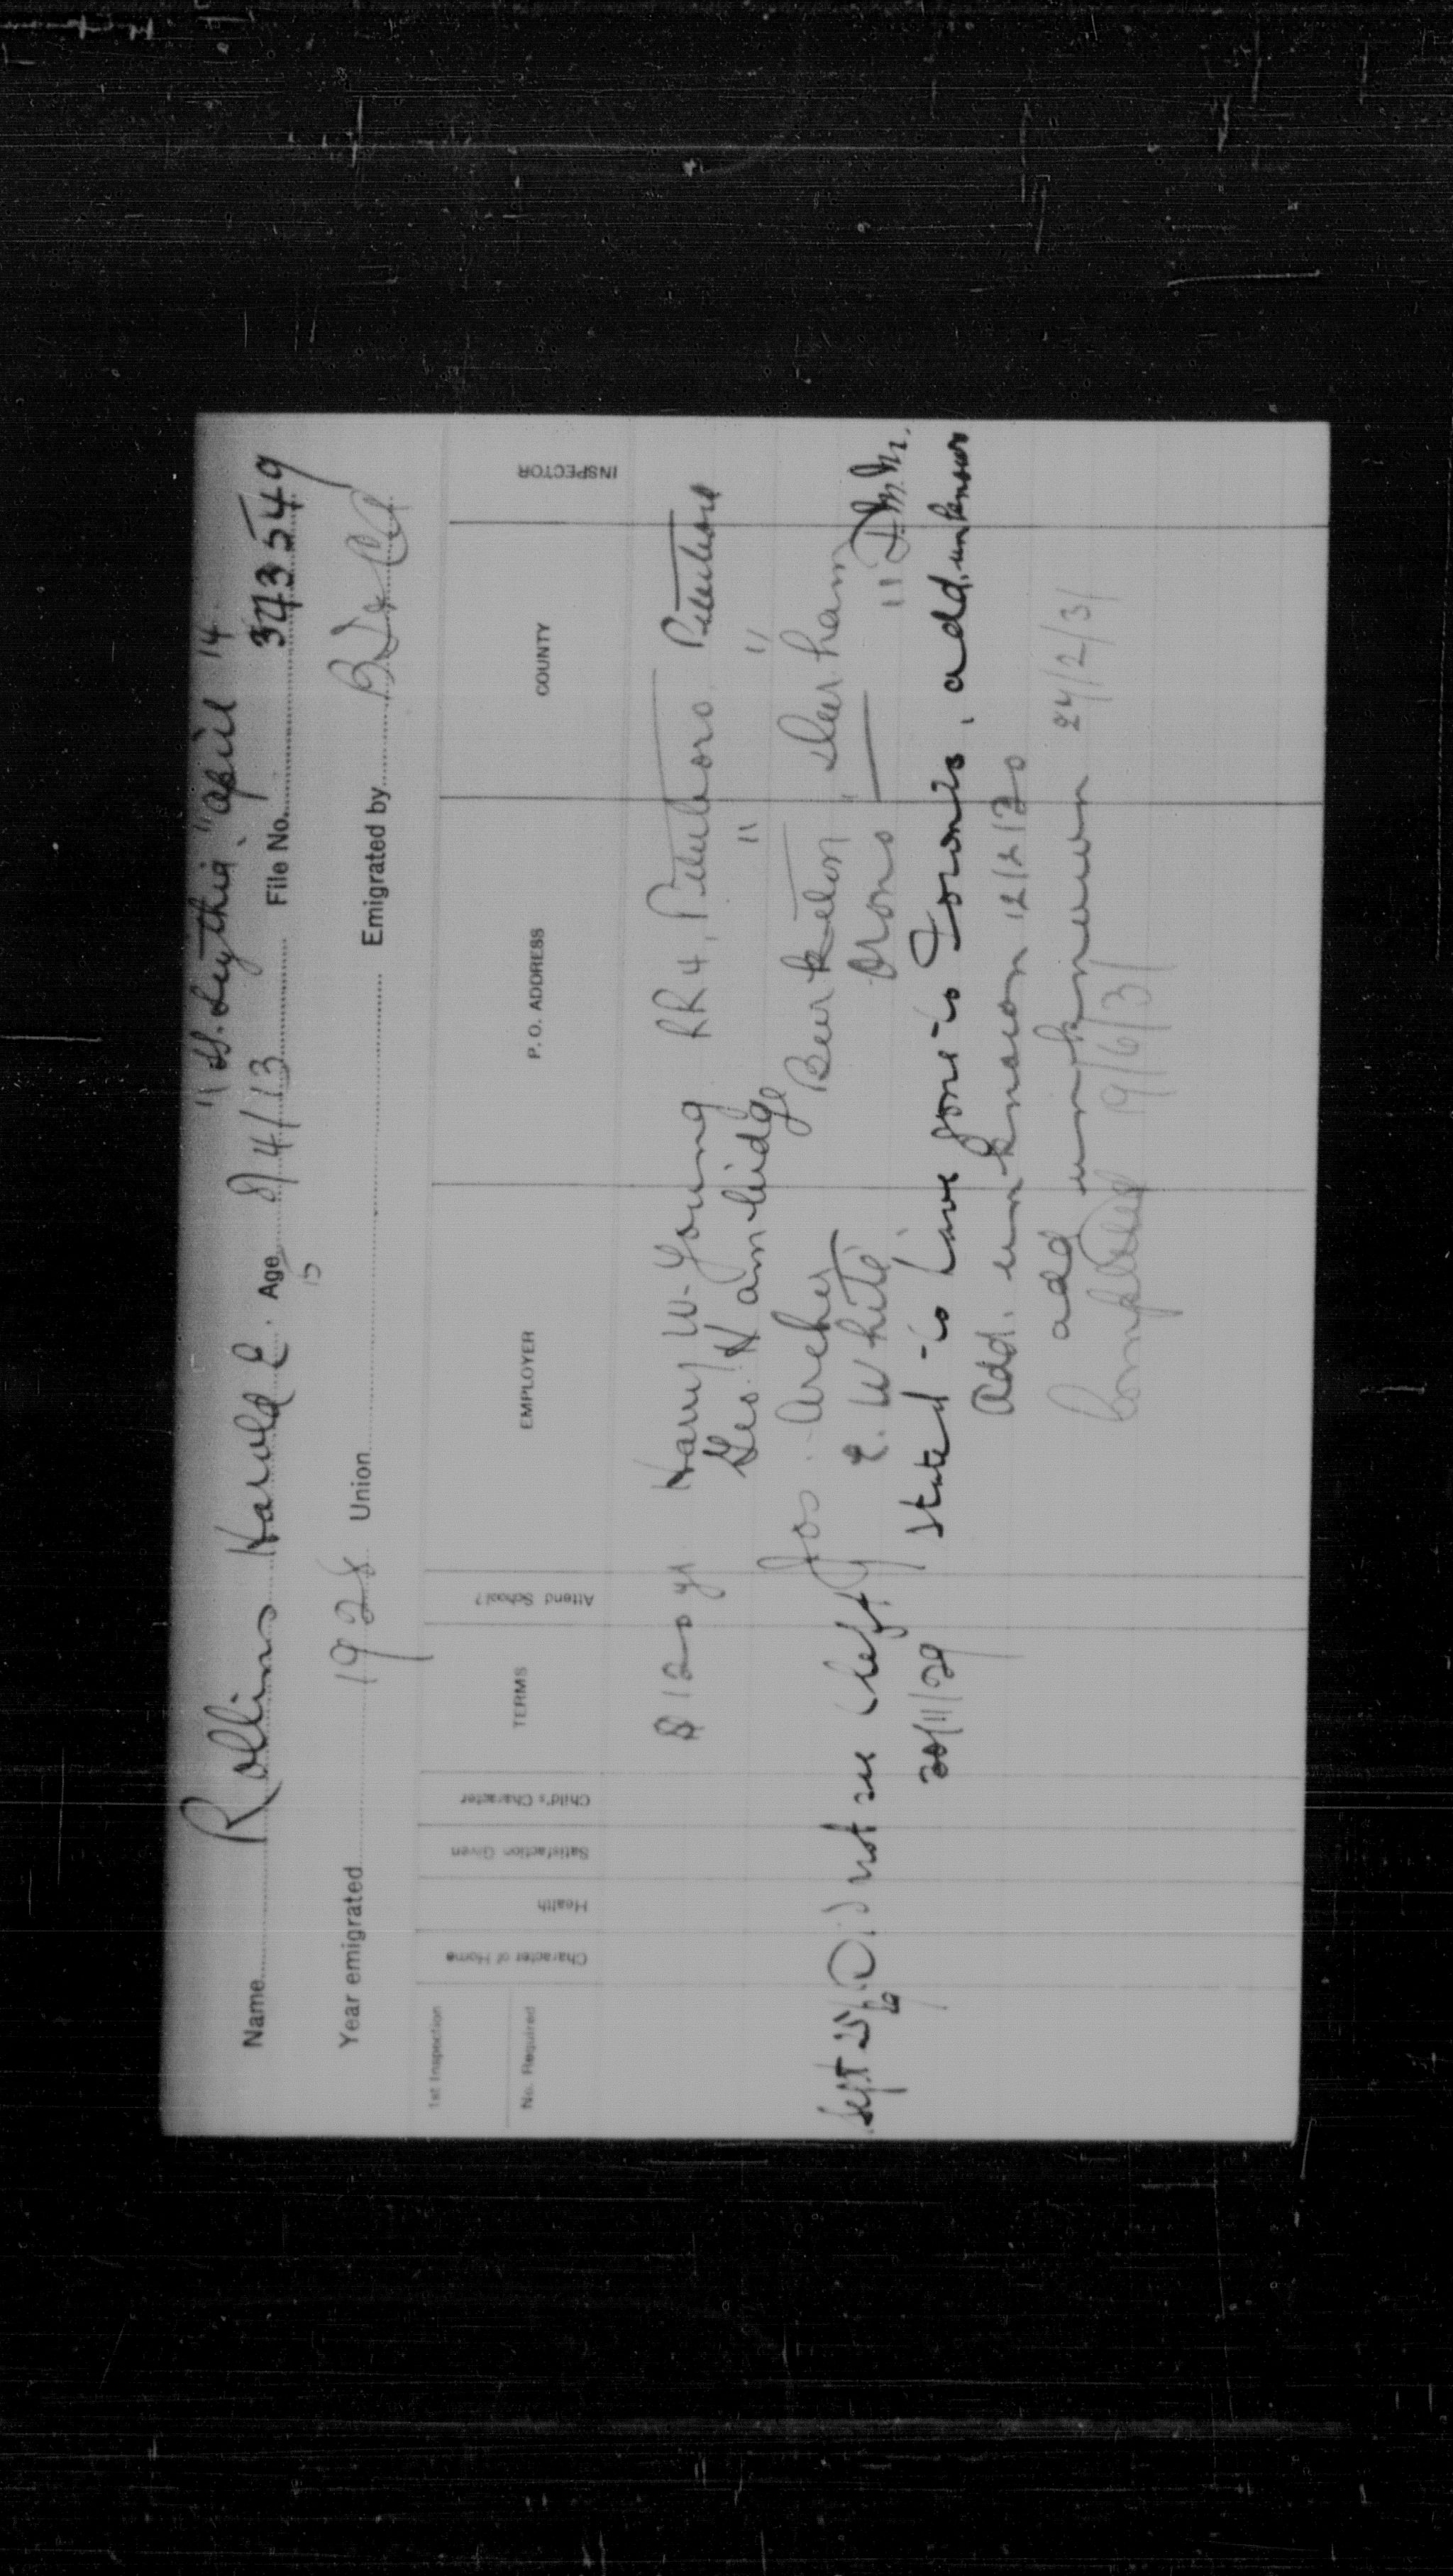 "SS. Scythia" April 14
Name Rollins Harold E. Age 8/4/13 File No. 343549
15
Year emigrated 1928 Union Emigrated by
1st Inspection
No. Required
Character of Home
Health
Satisfaction Given
Child's Character
TERMS
Attend School?
EMPLOYER
P. O. ADDRESS
COUNTY
INSPECTOR
$120 yr Harry W. Young RR 4, Peterboro, Peterboro
Geo. Hambidge " "
Jos. Archer Burketon, Durham
Sept 25/ Did not see (left) E. White Orono "
20/11/29 Stated to have gone to Toronto, add. unknown
Add. unknown 12/2/30
add unknown 24/2/31
Completed 19/6/31